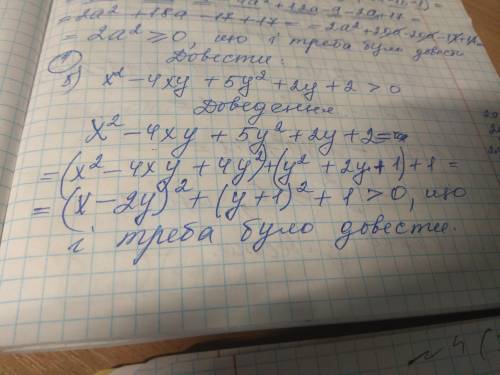 = 2a² + 18a − 17 + 17 =
= 2a² ≥ 0, що і треба було довести
Довести:
б) x² − 4xy + 5y² + 2y + 2 > 0
Доведення
x² − 4xy + 5y² + 2y + 2 =
= (x² − 4xy + 4y²) + (y² + 2y + 1) + 1 =
= (x − 2y)² + (y + 1)² + 1 > 0, що
і треба було довести.